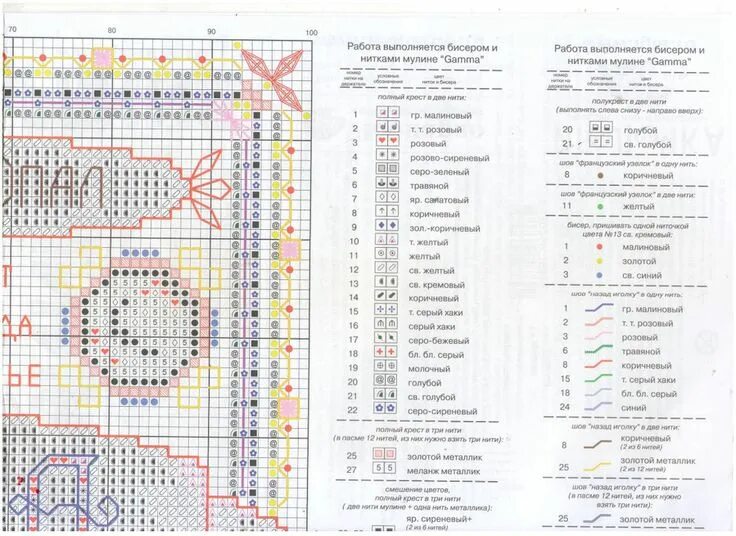 70 80 90 100
ОПАЛ
Т
ДА
ЬЕ
Работа выполняется бисером и
нитками мулине "Gamma"
номер нитки на держателе
условные обозначения
цвет ниток и бисера
полный крест в две нити:
1 гр. малиновый
2 т. т. розовый
3 розовый
4 розово-сиреневый
5 серо-зеленый
6 травяной
7 яр. салатовый
8 коричневый
9 зол.-коричневый
10 т. желтый
11 желтый
12 св. желтый
13 св. кремовый
14 коричневый
15 т. серый хаки
16 серый хаки
17 серо-бежевый
18 бл. бл. серый
19 молочный
20 голубой
21 св. голубой
22 серо-сиреневый
полный крест в три нити
(в пасме 12 нитей, из них нужно взять три нити):
25 золотой металлик
27 5 5 меланж металлик
смешение цветов,
полный крест в три нити
( две нити мулине + одна нить металлика):
яр. сиреневый+
(2 из 6 нитей)
Работа выполняется бисером и
нитками мулине "Gamma"
номер нитки на держателе
условные обозначения
цвет ниток и бисера
полукрест в две нити
(выполнять слева снизу - направо вверх):
20 голубой
21 = = св. голубой
шов "французский узелок" в одну нить:
8 коричневый
шов "французский узелок" в две нити:
11 желтый
бисер, пришивать одной ниточкой
цвета №13 св. кремовый:
1 малиновый
2 золотой
3 св. синий
шов "назад иголку" в одну нить:
1 гр. малиновый
2 т. т. розовый
3 розовый
6 травяной
8 коричневый
15 т. серый хаки
18 бл. бл. серый
24 синий
шов "назад иголку" в две нити:
8 коричневый
(2 из 6 нитей)
25 золотой металлик
(2 из 12 нитей)
шов "назад иголку" в три нити
(в пасме 12 нитей, из них нужно
взять три нити):
25 золотой металлик